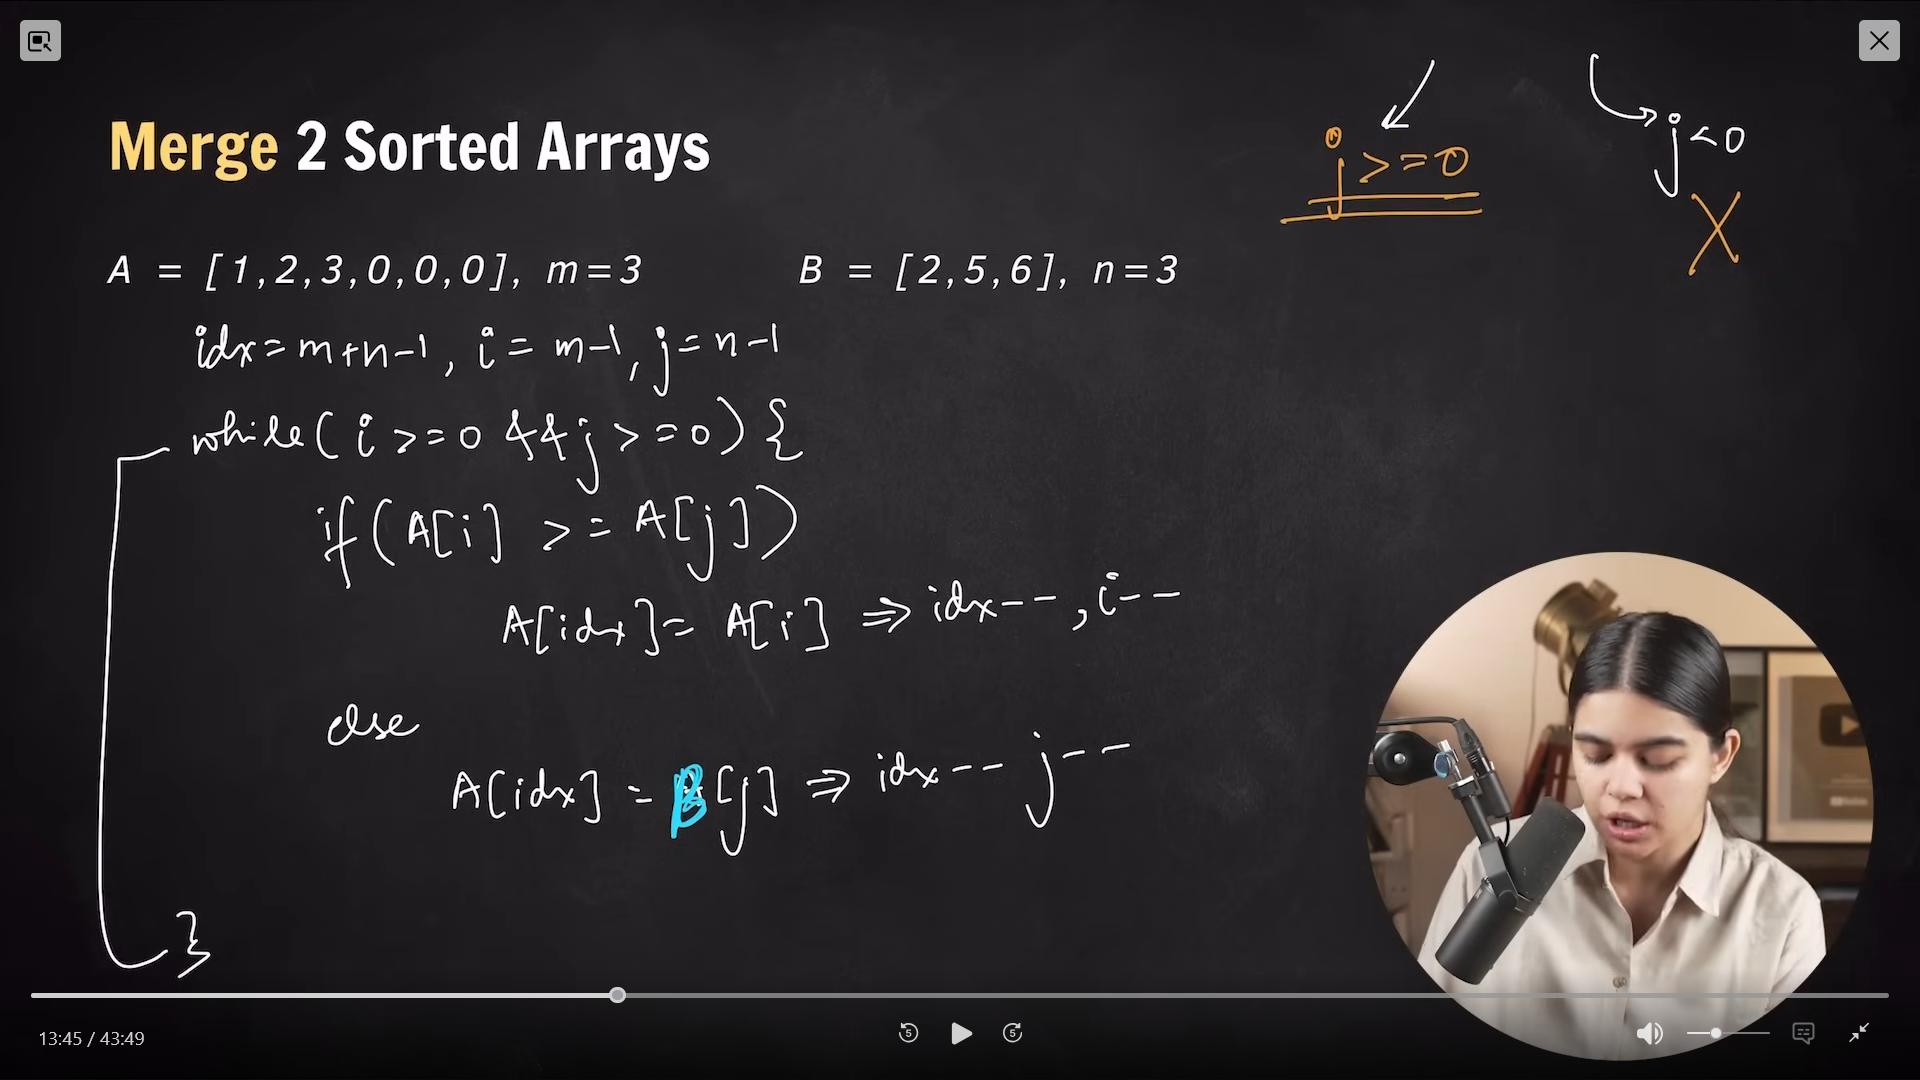 Merge 2 Sorted Arrays
j >= 0
j < 0
X
A = [1,2,3,0,0,0], m=3 B = [2,5,6], n=3
idx = m+n-1, i = m-1, j = n-1
while( i >= 0 && j >= 0) {
if (A[i] >= A[j])
A[idx] = A[i] ⇒ idx--, i--
else
A[idx] = B[j] ⇒ idx-- j--
}
5 5
13:45 / 43:49